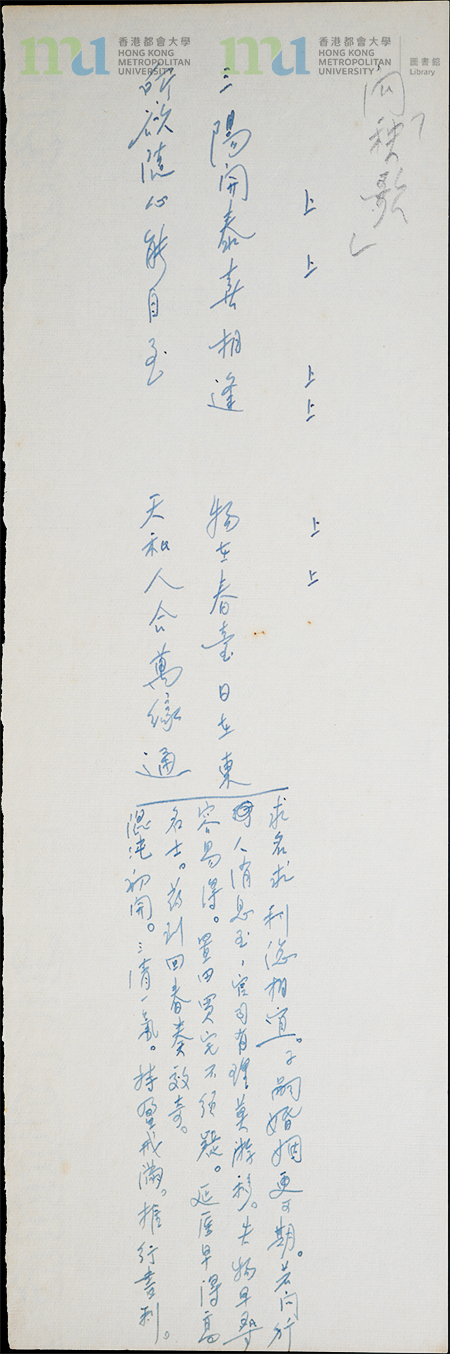 香港都會大學
HONG KONG
METROPOLITAN
UNIVERSITY
香港都會大學
HONG KONG
METROPOLITAN
UNIVERSITY
圖書館
Library
「秧歌」
上上 上上 上上
三陽開泰喜相逢 物在春臺日在東
所欲隨心能自至 天和人合萬緣通
求名求利總相宜。子嗣婚姻更可期。若問行
人消息至,官司有理莫游移。失物早尋
容易得。置田買宅不須疑。延医早得高
名士。药到回春奏效奇。
混沌初開。三清一氣。持盈戒滿。推行書利。